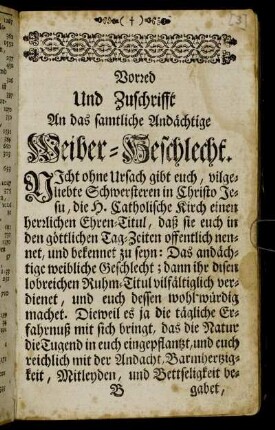 ( † )
[3]
Vorred
Und Zuschrifft
An das samtliche Andächtige
Weiber-Geschlecht.
NIcht ohne Ursach gibt euch, vilge-
liebte Schwesteren in Christo Je-
su, die H. Catholische Kirch einen
herrlichen Ehren-Titul, daß sie euch in
den göttlichen Tag-Zeiten offentlich nen-
net, und bekennet zu seyn: Das andäch-
tige weibliche Geschlecht; dann ihr disen
lobreichen Ruhm-Titul vilfältiglich ver-
dienet, und euch dessen wohl würdig
machet. Dieweil es ja die tägliche Er-
fahrnuß mit sich bringt, das die Natur
die Tugend in euch eingepflantzt, und euch
reichlich mit der Andacht, Barmhertzig-
keit, Mitleyden, und Bettseligkeit be-
B gabet,